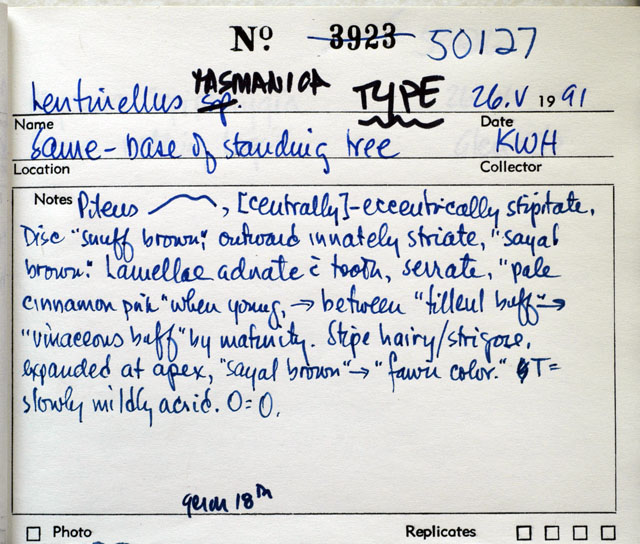 Nº 3923 50127
Lentinellus sp. TASMANICA TYPE 26.V 1991
Name Date
Same - base of standing tree KWH
Location Collector
Notes Pileus , [centrally]-eccentrically stipitate.
Disc "snuff brown", outward innately striate, "sayal
brown." Lamellae adnate c̄ tooth, serrate, "pale
cinnamon pink" when young, → between "tilleul buff" →
"vinaceous buff" by maturity. Stipe hairy/strigose,
expanded at apex, "sayal brown" → "fawn color." T=
slowly mildly acrid. O=O.
germ 18th
Photo Replicates